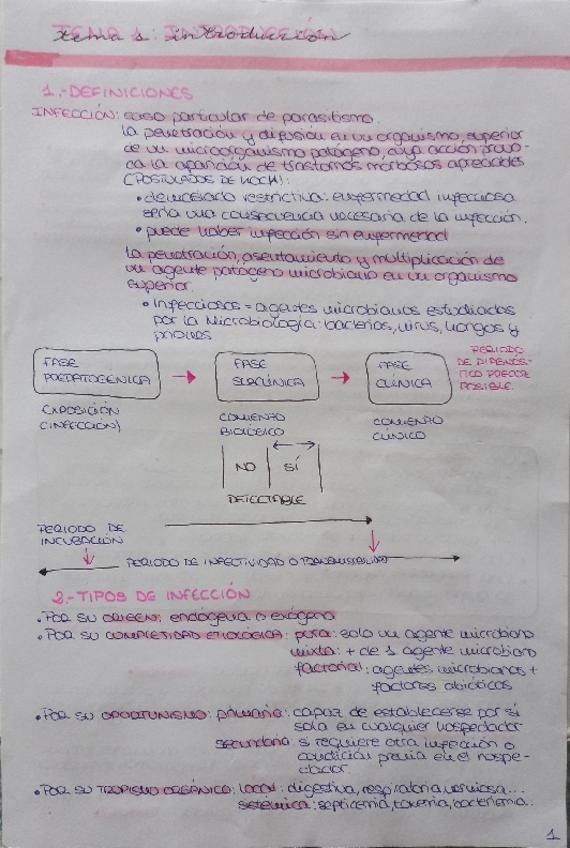 TEMA 1: INTRODUCCIÓN
1.-DEFINICIONES
INFECCIÓN: caso particular de parasitismo.
la penetración y difusión en un organismo superior
de un microorganismo patógeno, cuya acción provo-
ca la aparición de trastornos morbosos apreciables
(POSTULADOS DE KOCH):
• demasiado restrictiva: enfermedad infecciosa
sería una consecuencia necesaria de la infección.
• puede haber infección sin enfermedad
la penetración, asentamiento y multiplicación de
un agente patógeno microbiano en un organismo
superior.
• Infecciosos = agentes microbianos estudiados
por la Microbiología: bacterias, virus, hongos y
priones
FASE
PREPATOGÉNICA
→
FASE
SUBCLÍNICA
→
FASE
CLÍNICA
PERIODO
DE DIAGNÓS-
TICO PRECOZ
POSIBLE.
EXPOSICIÓN
(INFECCIÓN)
COMIENZO
BIOLÓGICO
COMIENZO
CLÍNICO
NO
SÍ
DETECTABLE
PERIODO DE
INCUBACIÓN
PERIODO DE INFECTIVIDAD O TRANSMISIBILIDAD
2.-TIPOS DE INFECCIÓN
• POR SU ORIGEN: endógena o exógena
• POR SU COMPLEJIDAD ETIOLÓGICA: pura: solo un agente microbiano
mixta: + de 1 agente microbiano
factorial: agentes microbianos +
factores abióticos
• POR SU OPORTUNISMO: primaria: capaz de establecerse por sí
sola en cualquier hospedador
secundaria: si requiere otra infección o
condición previa en el hospe-
dador.
• POR SU TROPISMO ORGÁNICO: local: digestiva, respiratoria, nerviosa...
sistémica: septicemia, toxemia, bacteriemia...
1